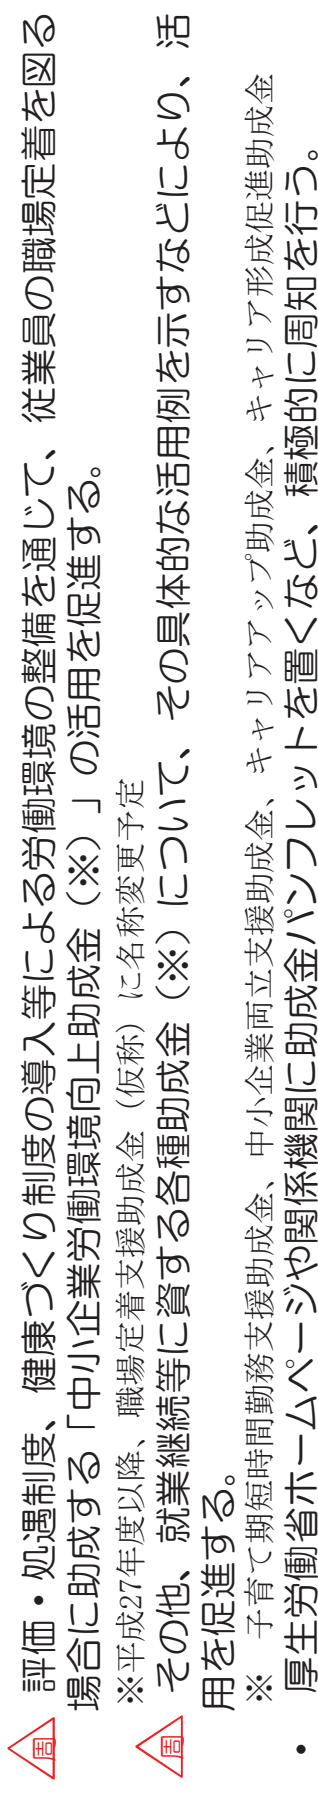 周 評価・処遇制度、健康づくり制度の導入等による労働環境の整備を通じて、従業員の職場定着を図る
場合に助成する「中小企業労働環境向上助成金（※）」の活用を促進する。
※平成27年度以降、職場定着支援助成金（仮称）に名称変更予定
周 その他、就業継続等に資する各種助成金（※）について、その具体的な活用例を示すなどにより、活
用を促進する。
※ 子育て期短時間勤務支援助成金、中小企業両立支援助成金、キャリアアップ助成金、キャリア形成促進助成金
• 厚生労働省ホームページや関係機関に助成金パンフレットを置くなど、積極的に周知を行う。